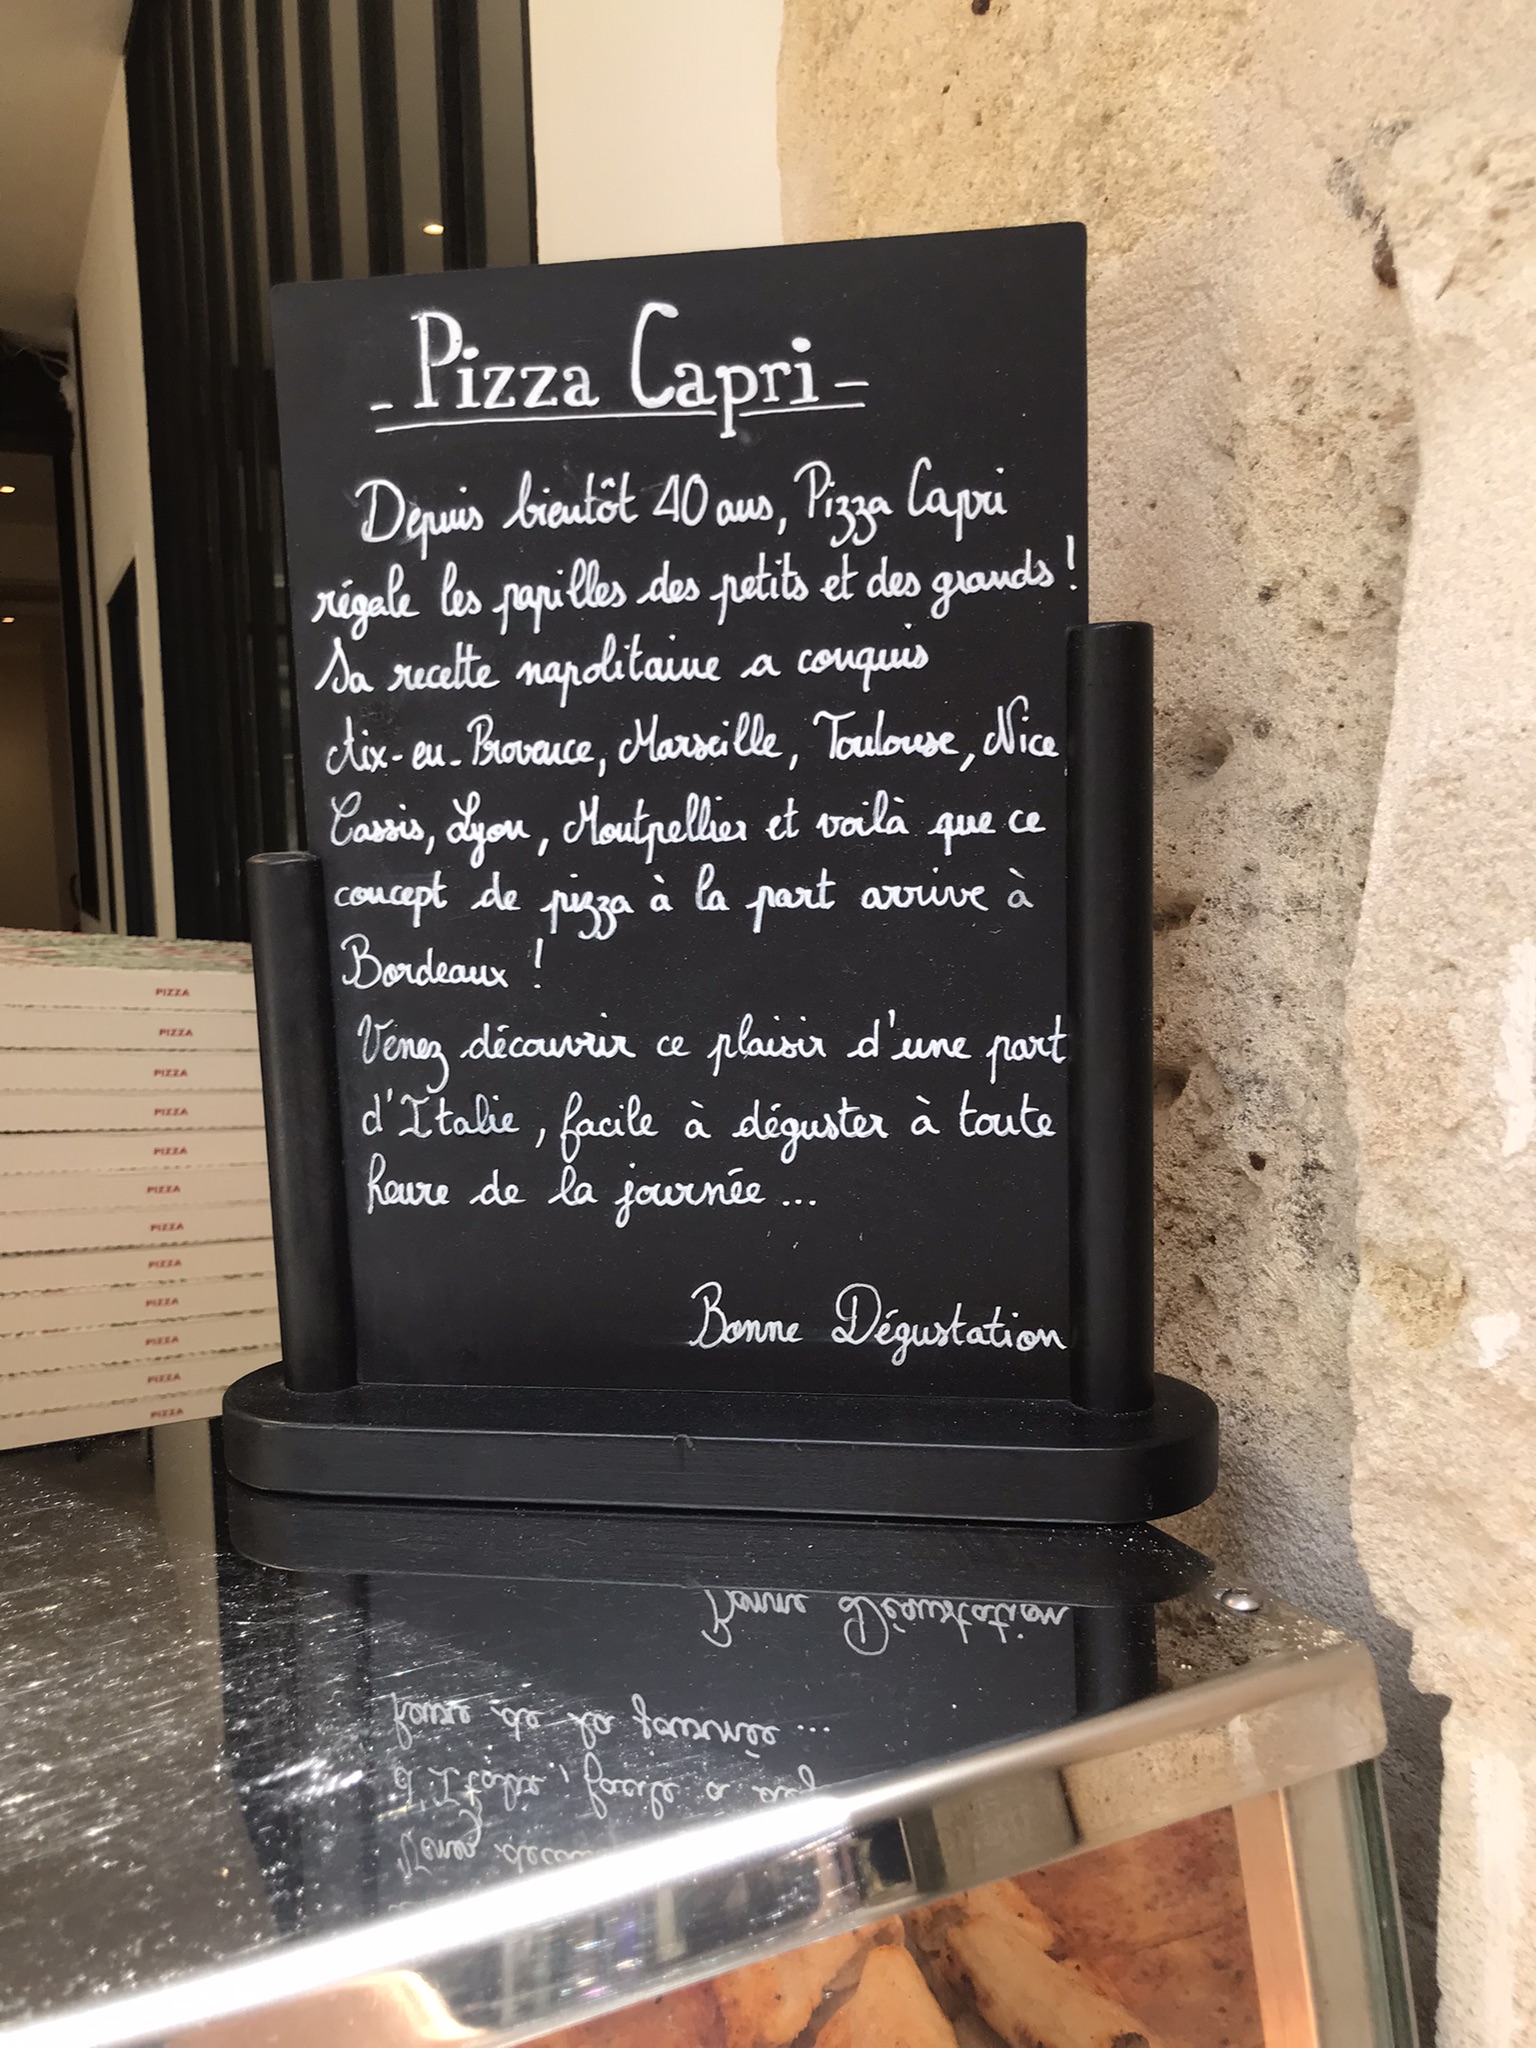 - Pizza Capri -
Depuis bientôt 40 ans, Pizza Capri
régale les papilles des petits et des grands !
Sa recette napolitaine a conquis
Aix-en-Provence, Marseille, Toulouse, Nice
Cassis, Lyon, Montpellier et voilà que ce
concept de pizza à la part arrive à
Bordeaux !
Venez découvrir ce plaisir d'une part
d'Italie, facile à déguster à toute
heure de la journée ...
Bonne Dégustation
PIZZA
PIZZA
PIZZA
PIZZA
PIZZA
PIZZA
PIZZA
PIZZA
PIZZA
PIZZA
PIZZA
PIZZA